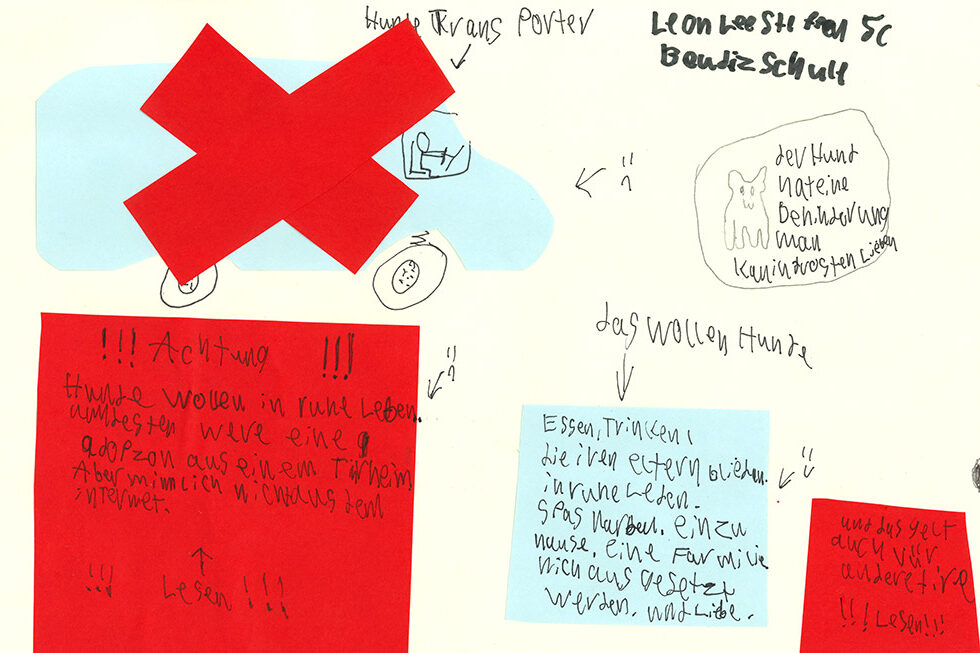 Hunde Trans Porter
Leon Lee Steffen 5c
Bendiz Schull
der Hund
hat eine
Behinderung
man
kanin trosten Lieben
!!! Achtung !!!
Hunde wollen in ruhe Leben.
were eine
adopzon aus einem Tirheim,
Aber nicht aus dem
internet.
!!! Lesen !!!
das wollen Hunde
Essen, Trinken,
die iren eltern blieben.
in ruhe Leben.
Spas einzu
hause. eine Farmilie
nich aus gesetzt
werden. und Liebe.
und das gelt
auch vür
andere tire
!!! Lesen!!!